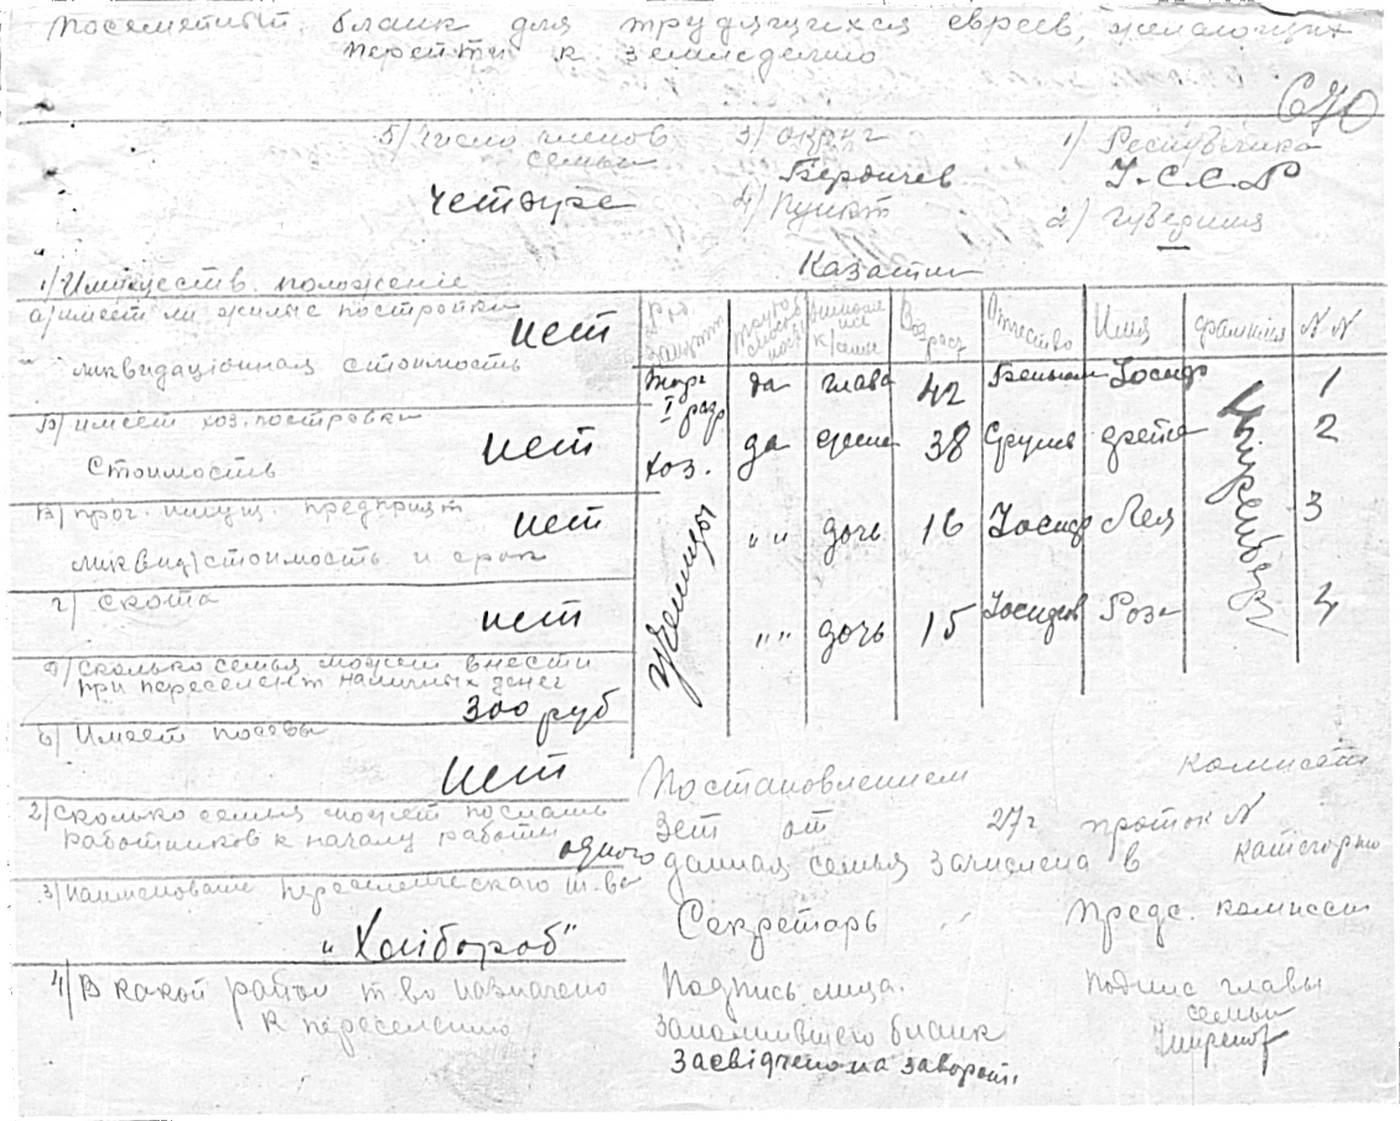 Посемейный бланк для трудящихся евреев, желающих
перейти к земледелию
670
5) Число членов
семьи
четыре
3) округ
Бердичев
4) Пункт
Казатин
1) Республика
У.С.С.Р
2) губерния
—
1) Имуществ. положение
а) имеет ли жилые постройки
нет
ликвидаціонная стоимость
Б) имеет хоз. постройки
нет
Стоимость
В) проч. имущ. предприят
нет
ликвид/стоимость и срок
г) скота
нет
д) сколько семья может внести
при переселен наличных денег
300 руб
Имеет посевы
нет
2) сколько семья может послать
работников к началу работы
одного
3) наименование переселенческаго т-ва
"Хлібороб"
4) В какой район т-во назначено
к переселению
Род занят
трудоспособность
к/семье
Возраст
Отчество
Имя
фамилия
N N
торг I разр
да
глава
42
Иосиф
1
хоз.
да
38
2
ученицы
" "
дочь
16
Иосиф
Лея
3
" "
дочь
15
Роза
4
Постановлением
комисет
Зет от 27г проток N
данная семья зачислена в категорию
Секретарь
Предс. комиссии
Подпись лица.
заполнившего бланк
Засвідчено на звороті
подпис главы
семьи